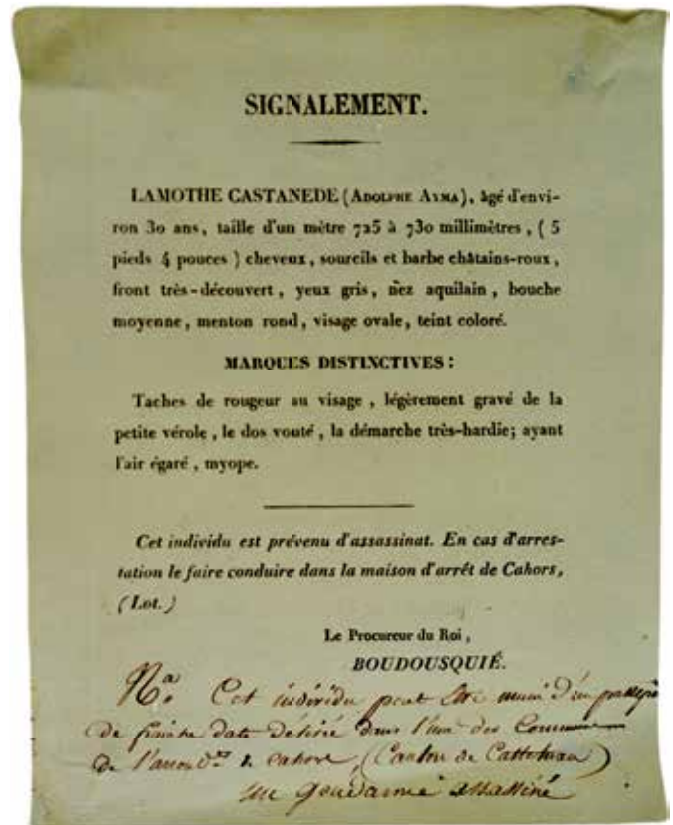 SIGNALEMENT.
LAMOTHE CASTANEDE (ADOLPHE AYMA), âgé d'envi-
ron 30 ans, taille d'un mètre 725 à 730 millimètres, ( 5
pieds 4 pouces ) cheveux, sourcils et barbe châtains-roux,
front très-découvert, yeux gris, nez aquilain, bouche
moyenne, menton rond, visage ovale, teint coloré.
MARQUES DISTINCTIVES :
Taches de rougeur au visage, légèrement gravé de la
petite vérole, le dos vouté, la démarche très-hardie; ayant
l'air égaré, myope.
Cet individu est prévenu d'assassinat. En cas d'arres-
tation le faire conduire dans la maison d'arrêt de Cahors,
(Lot.)
Le Procureur du Roi,
BOUDOUSQUIÉ.
Na. Cet individu peut être muni d'un
de date délivré dans l'une des Communes
de l'arrondt de Cahors, (Canton de )
un Gendarme assassiné